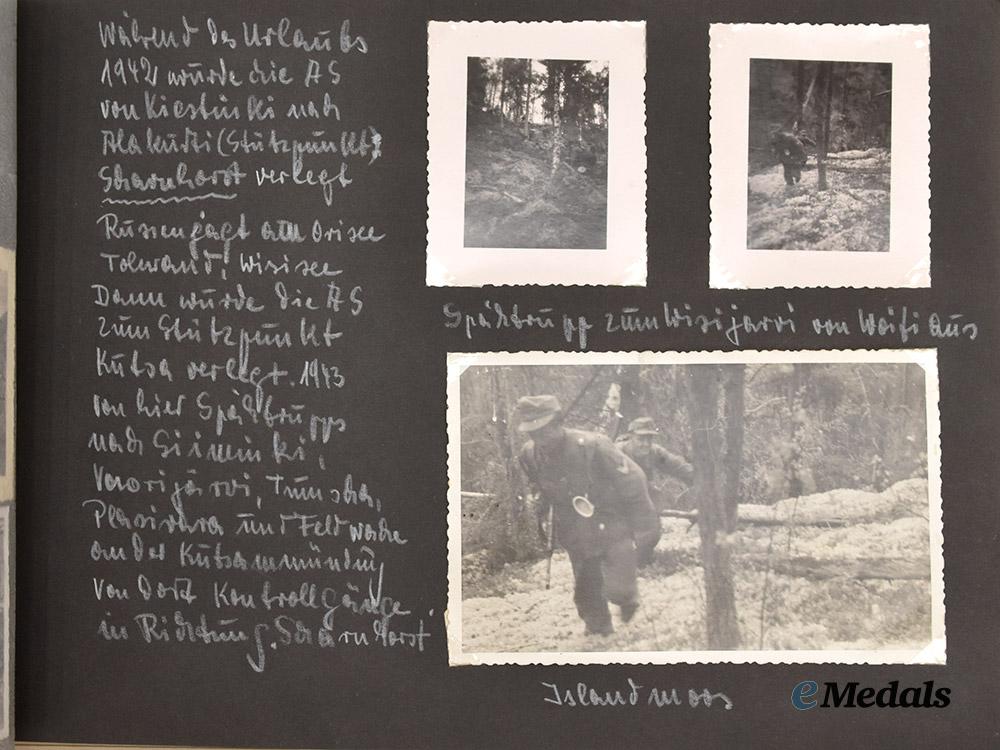 Während des Urlaubs
1942 wurde die AS
von Kiestinki nach
Alakurtti (Stützpunkt)
Scharnhorst verlegt
Russenjagd am Orisee
Tolwand, Wisisee
Dann wurde die AS
zum Stützpunkt
Kutsa verlegt. 1943
von hier Spähtrupps
nach
Vuorijärvi, Tumscha,
und Feldwache
an der Kutsammündung
von dort Kontrollgänge
in Richtung Scharnhorst
Spähtrupp zum Wisijarvi von aus
Islandmoos
eMedals